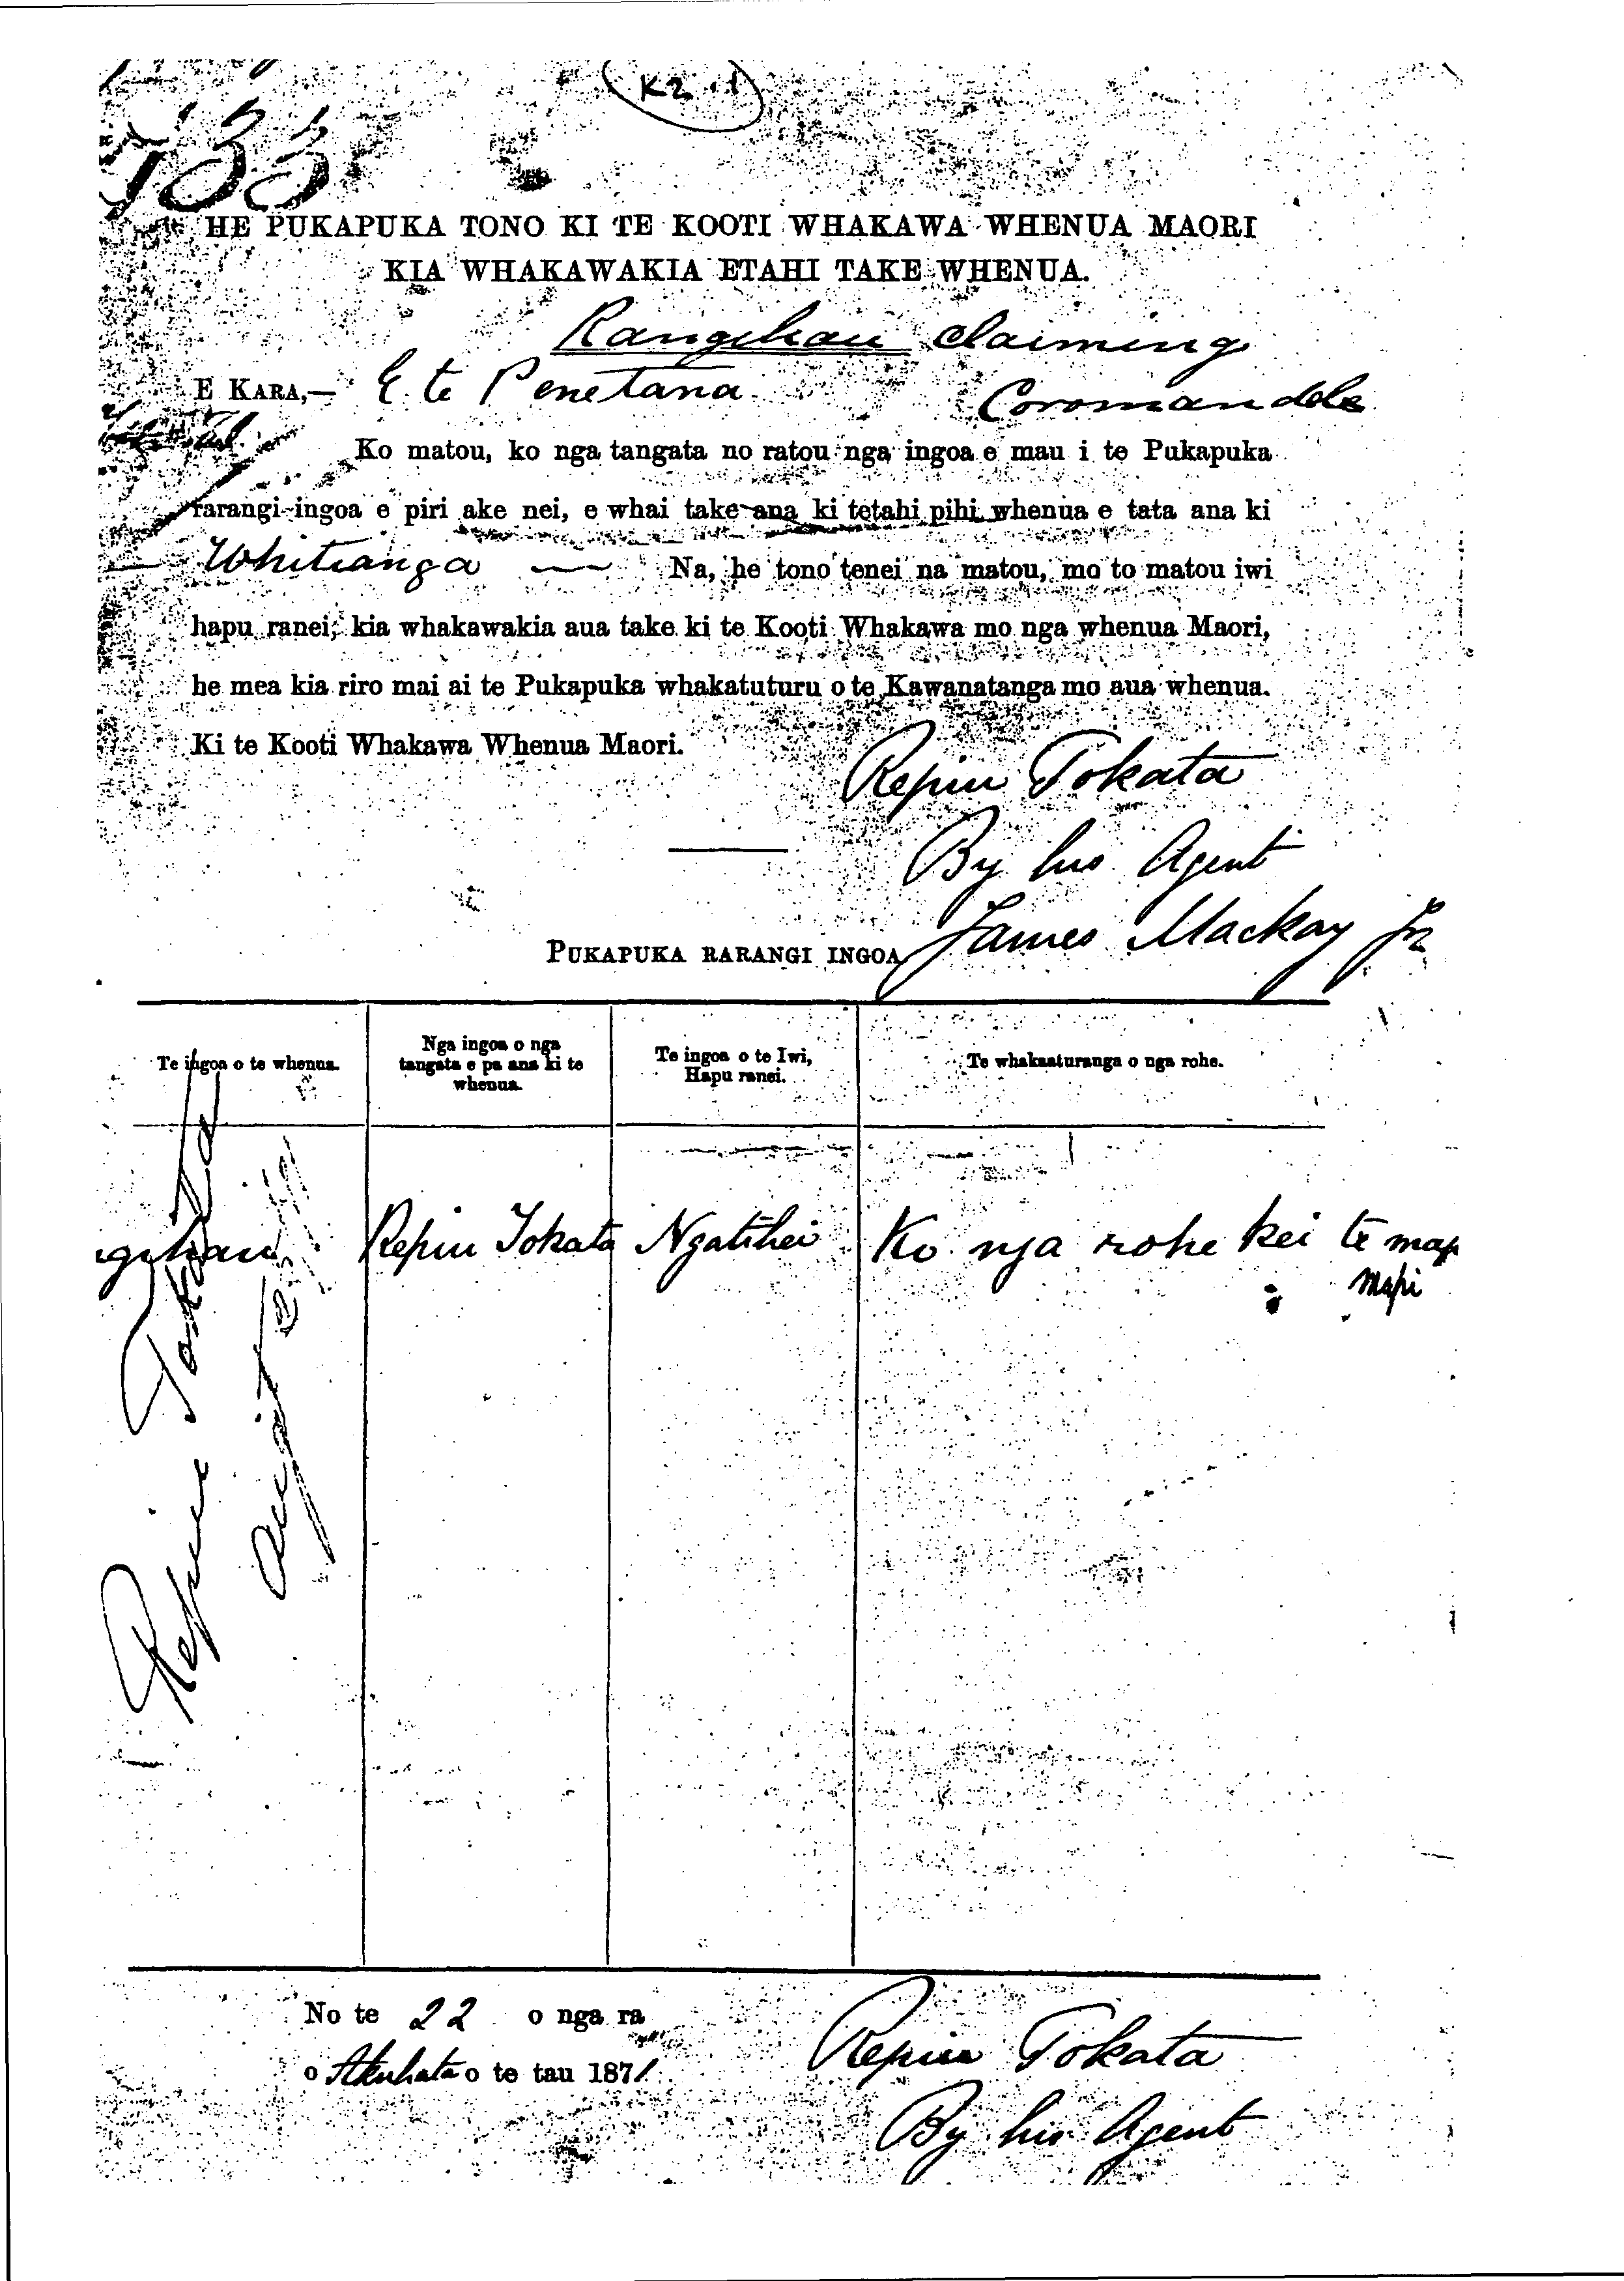 K2 . 1
733
HE PUKAPUKA TONO KI TE KOOTI WHAKAWA WHENUA MAORI
KIA WHAKAWAKIA ETAHI TAKE WHENUA.
Rangihau claiming
E KARA,— E te Penetana Coromandel
Ko matou, ko nga tangata no ratou nga ingoa e mau i te Pukapuka
rarangi ingoa e piri ake nei, e whai take ana ki tetahi pihi whenua e tata ana ki
Whitianga — Na, he tono tenei na matou, mo to matou iwi
hapu ranei, kia whakawakia aua take ki te Kooti Whakawa mo nga whenua Maori,
he mea kia riro mai ai te Pukapuka whakatuturu o te Kawanatanga mo aua whenua.
Ki te Kooti Whakawa Whenua Maori.
Repiu Tokata
By his Agent
James Mackay Jr
PUKAPUKA RARANGI INGOA
Te ingoa o te whenua.
Nga ingoa o nga
tangata e pa ana ki te
whenua.
Te ingoa o te Iwi,
Hapu ranei.
Te whakaaturanga o nga rohe.
gihau Repiu Tokata Ngatihei Ko nga rohe kei te map
mapi
Repiu Tokata
No te 22 o nga ra
o Akuhata o te tau 1871.
Repiu Tokata
By his Agent